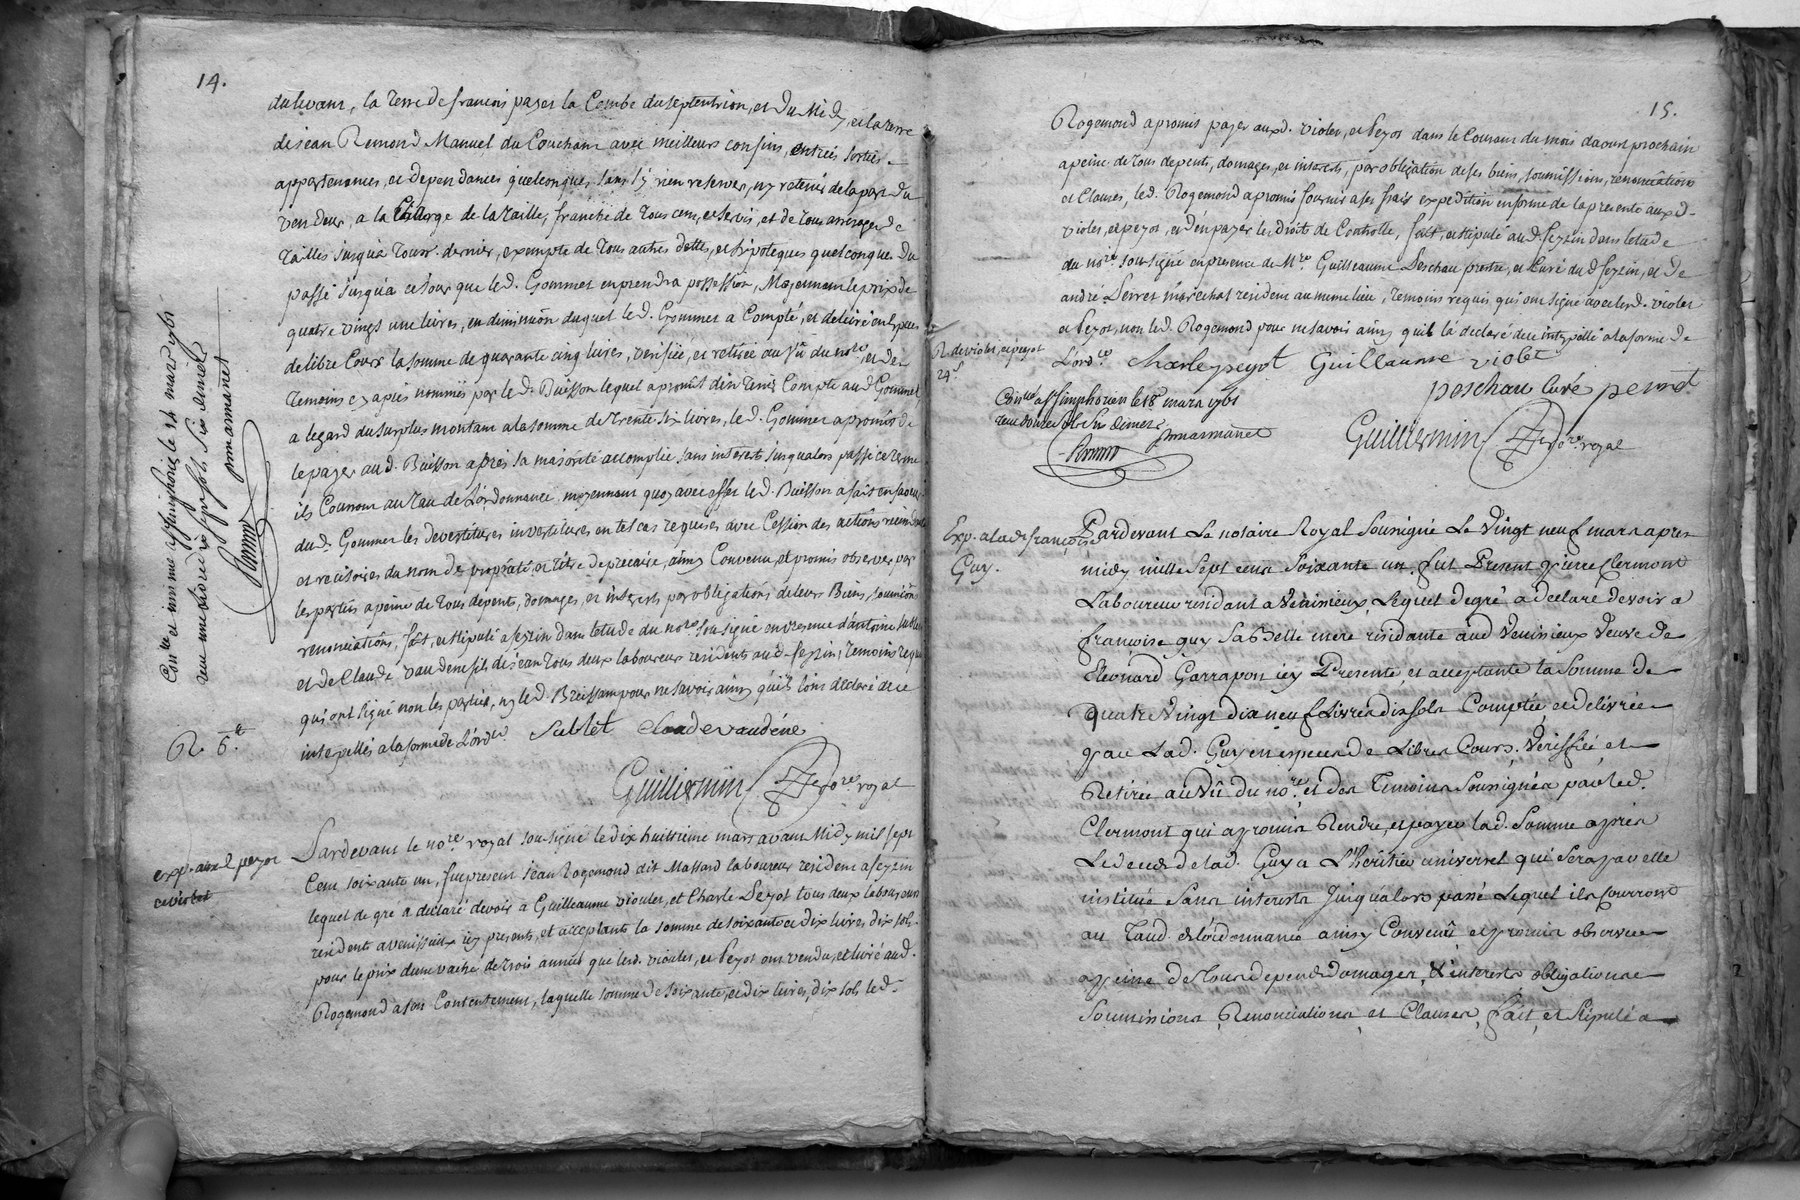 14.
du levant, la terre de francois payet la Combe du septentrion, et du Midy, et la terre
de jean Remond Manuel du Couchant avec meilleurs confins, entrées sorties
appartenances, et dependances quelconques, sans s'y rien reserver, ny retenir de la part du
vendeur, a la Charge de la taille, franche de tous cens, et servis, et de tous arrerages de
tailles jusqua ce jour dernier, exempte de tous autres dettes, et hipoteques quelconque du
passé jusqua ce jour que led. Gommet en prendra possession, Moyennant le prix de
quatre vingt une livres, en diminuon duquel led. Gommet a Compté, et delivré en especes
de libre Cours la somme de quarante cinq livres, verifiée, et retirée au vû du nore, et des
temoins cy aprés nommés par led. Buisson lequel a promit d'en tenir Compte aud. Gommet,
a legard du surplus montant a la somme de trente six livres, led. Gommet a promis de
le payer aud. Buisson aprés sa majorité accomplie sans interets jusqualors passé ce terme
ils Courront au taux de L'ordonnance, moyennant quoy avec effet led. Buisson a fait en faveur
dud. Gommet les devestitures investitures en tel cas requises avec Cession des actions rescindantes
et rescisoires du nom de proprieté, et titre de precaire, ainsy Convenu, et promis observer par
les parties a peine de tous depents, domages, et interets par obligations de leurs Biens, soumisions
renonciations, fait, et stipulé a feyzin dans letude du nore soussigné en presence d'antoine sublet
et de Claude vaudene fils de jean tous deux laboureurs residents aud. feyzin, temoins requis
qui ont signé non les parties, ny led. Buisson pour ne savoir ainsy quils l'ont declaré de ce
interpellés a la forme de L'ordce. Sublet Claade vaudéne
Guilliermin nore royal
Conlle et insinué a st simphorien le 14 mars 1761
reçu une livre dix sept sols six deniers
ponarmanet
R. 5.tt
exp. auxd. peyot
et violet
Pardevant le nore royal soussigné le dix huitieme mars avant Midy mil sept
Cent soixante un, fut present jean Rogemond dit Massard laboureur resident a feyzin
lequel de gre a declaré devoir a Guilleaume violet, et Charle Peyot tous deux laboureurs
residents a venissieux icy presents, et acceptants la somme de soixante et dix livres dix sols
pour le prix d'une vache de trois années que lesd. violet, et Peyot ont vendu, et livré aud.
Rogemond a son Contentement, laquelle somme de soixante, et dix livres, dix sols led.
15.
Rogemond a promis payer auxd. violet, et Peyot dans le Courant du mois daoust prochain
a peine de tous depents, domages, et interests, par obligation de ses biens, soumissions, renonciations
et Clauses, led. Rogemond a promis fournir a ses frais expedition en forme de la presente auxd.
violet, et peyot, et d'en payer les droits de Controlle, fait, et stipulé aud. feyzin dans letude
du nore soussigné en presence de Mre. Guilleaume Peschau pretre, et Curé dud. feyzin, et de
andré Perret maréchal resident au meme lieu, temoins requis, qui ont signé avec lesd. violet
et Peyot, non led. Rogemond pour ne savoir ainsy quil la declaré de ce interpellé a la forme de
L'ordce. Charle peyot Guillaume violet
peschau Curé perret
Guilliermin nore royal
R. de violet, et peyot
24 s.
Conlle a st simphorien le 18 mars 1761
reçu douze sols six deniers
ponarmanet
Exp. a lad. françoise
Guy.
Pardevant Le notaire Royal Soussigné Le Vingt neuf mars apres
midy mille Sept cent Soixante un, fut Present pierre Clermont
Laboureur residant a Venissieux, Lequel de gré a declaré devoir a
françoise guy Sa Belle mere residante aud. Venissieux Veuve de
Léonard Garrapon icy Presente, et acceptante la Somme de
quatre Vingt dix neuf Livres dix sols Comptée, et delivrée
par Lad. Guy en especes de Libres Cours, Verifiée et
Retirée au Vû du nore. et des Temoins Soussignés par led.
Clermont qui a promis Rendre, et payer lad. Somme aprés
Le deces de lad. Guy a L'heritier universel qui sera par elle
institué Sans interests Jusqu'alors passé Lequel ils Courront
au Taud de l'ordonnance ainsy Convenû, et promis observer
a peine de Tous depends domages, & interests obligations
Soumisions, Renonciations et Clauses, fait, et Stipulé a